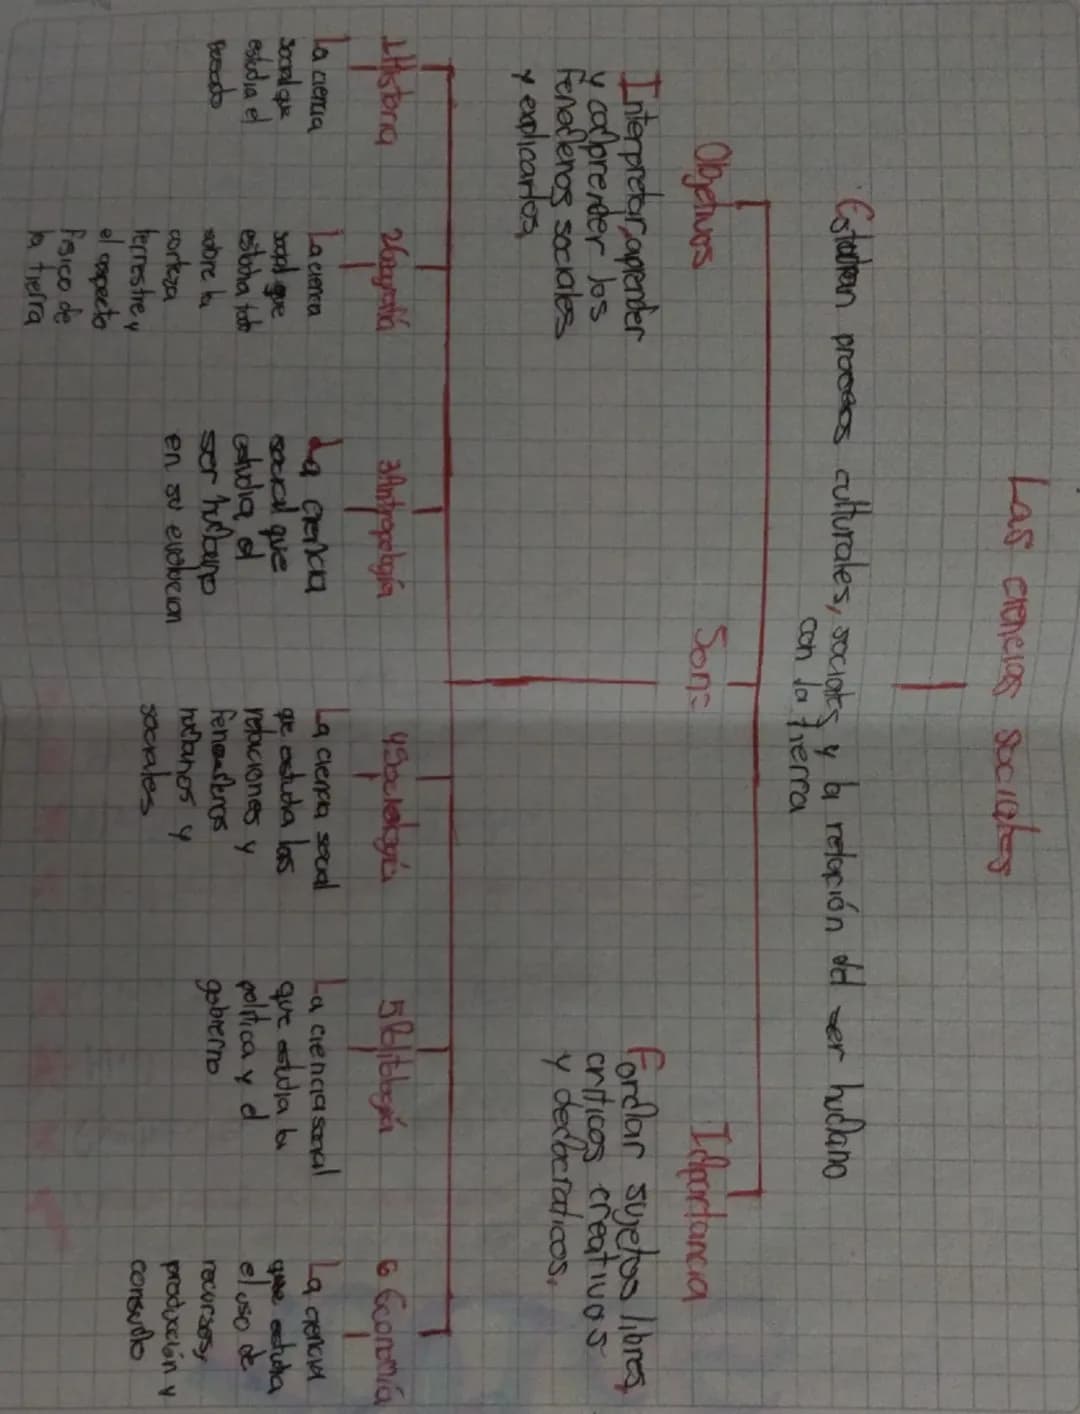 Las ciencias sociales
Estudian procesos culturales, sociales y la relación del ser humano
con la tierra
Objetivos
Interpretar, aprender
y comprender los
fenomenos sociales
y explicarlos,
Son=
Importancia
Formar sujetos libres,
criticos creativos
y democraticos.
1 Historia
La ciencia
social que
estudia el
pasado
2 Geografía
La ciencia
social que
estudia todo
sobre la
corteza
terrestre y
el aspecto
fisico de
la tierra
3 Antropología
La ciencia
social que
estudia el
ser humano
en su evolucion
4 Sociología
La ciencia social
que estudia las
relaciones y
fenomenos
humanos y
sociales
5 Politología
La ciencia social
que estudia la
política y el
gobierno
6 Economía
La ciencia
que estudia
el uso de
recursos,
producción y
consumo